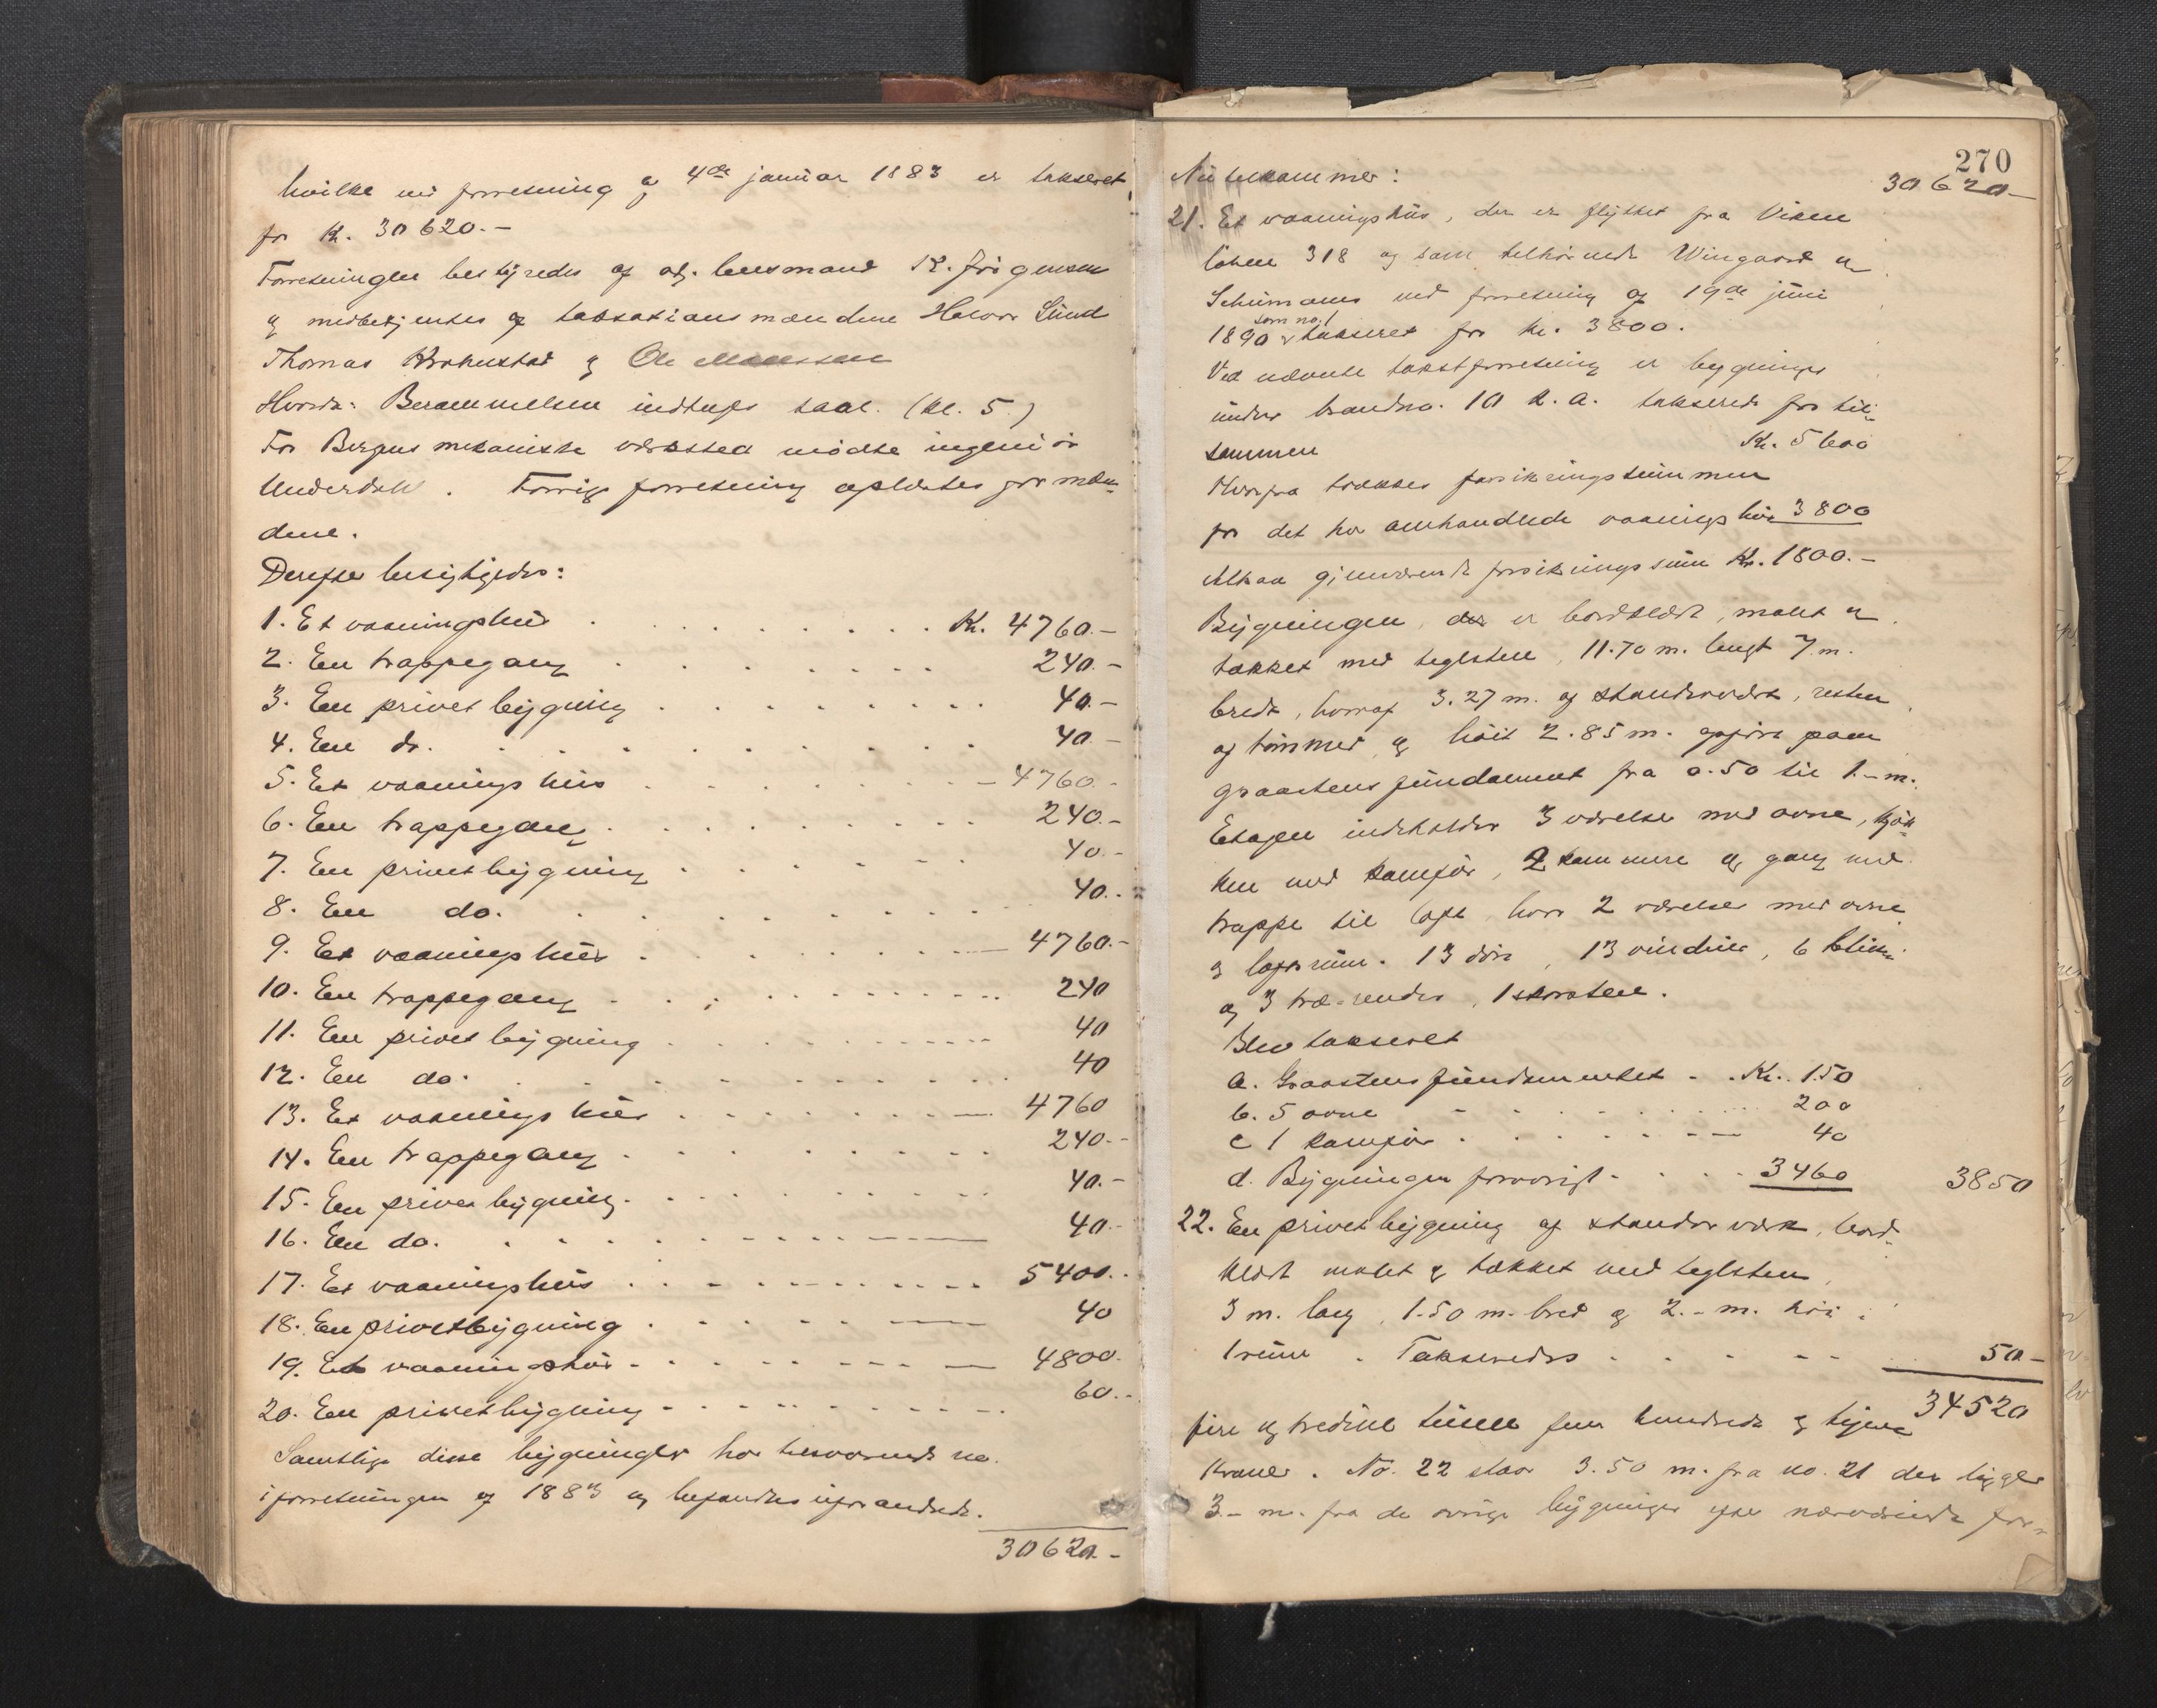 hvilke ved forretning af 4de januar 1883 er takseret
for Kr. 30620.-
Forretningen bestyredes af adj. lensmand K. Jørgensen
og medbetjentes af taksationsmændene Halvor Lund
Thomas Krohnstad og Ole Monssen
Hvorda: Berammelsen indtages saal. (kl. 5.)
For Bergens mekaniske værksted mødte ingeniør
Underdahl. Forrige forretning oplæstes for mæn-
dene.
Derefter besigtigedes:
1. Et vaaningshus . . . Kr. 4760.-
2. En trappegang . . . 240.-
3. En privetbygning . . . 40.-
4. En do. . . . 40.-
5. Et vaaningshus . . . 4760.-
6. En trappegang . . . 240.-
7. En privetbygning . . . 40.-
8. En do. . . . 40.-
9. Et vaaningshus . . . 4760.-
10. En trappegang . . . 240
11. En privetbygning . . . 40
12. En do. . . . 40
13. Et vaaningshus . . . 4760
14. En trappegang . . . 240.-
15. En privetbygning . . . 40.-
16. En do. . . . 40.-
17. Et vaaningshus . . . 5400.-
18. En privetbygning . . . 40
19. Et vaaningshus . . . 4800.-
20. En privetbygning . . . 60.-
Samtlige disse bygninger har tilsvarende no.
i forretningen af 1883 og befandtes uforandrede.
30620.-
270
Nu tilkommer: 30620.-
21. Et vaaningshus, der er flyttet fra Viken
løbene 318 og som tilhørende Wingaard &
Schumanns ved forretning af 19de juni
som no. 1
1890 er takseret for kr. 3800.
Ved nævnte takstforretning er bygninger
under brandno. 10 K. a. takserede for til-
sammen Kr. 5600
Hvorfra trækkes forsikringssummen
for det her omhandlede vaaningshus 3800
Altsaa gjenværende forsikringssum Kr. 1800.-
Bygningen, der er bordklædt, malet &
tækket med teglsten, 11.70 m. langt 7 m.
bredt, hvoraf 3.27 m. af standerværk, resten
af tømmer og høit 2.85 m. opført paa
graastensfundament fra 0.50 til 1.- m.
Etagen indeholder 3 værelser med ovne, kjøk-
ken med komfur, 2 kammere og gang med
trappe til loft, hvor 2 værelser med ovne
og loftsrum. 13 døre, 13 vinduer, 6 blik-
og 3 træ-render, 1 skorsten.
Blev takseret
a. Graastensfundamentet . . Kr. 150
b. 5 ovne . . . 200
c 1 komfur . . . 40
d. Bygningen forøvrigt . . . 3460 3850
22. En privetbygning af standerværk, bord-
klædt malet & tækket med teglsten,
3 m. lang, 1.50 m. bred og 2.- m. høi.
1 rum. Takseredes . . . 50.-
34520
fire og tredive tusen fem hundrede og tyve
Kroner. No. 22 staar 3.50 m. fra no. 21 der ligger
3.- m. fra de øvrige bygninger efter nærværende for-